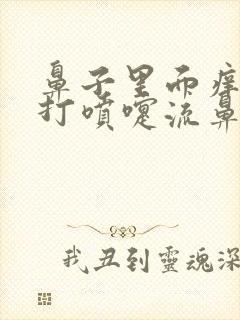 鼻子里而痒
打喷嚏流鼻
我丑到靈魂深